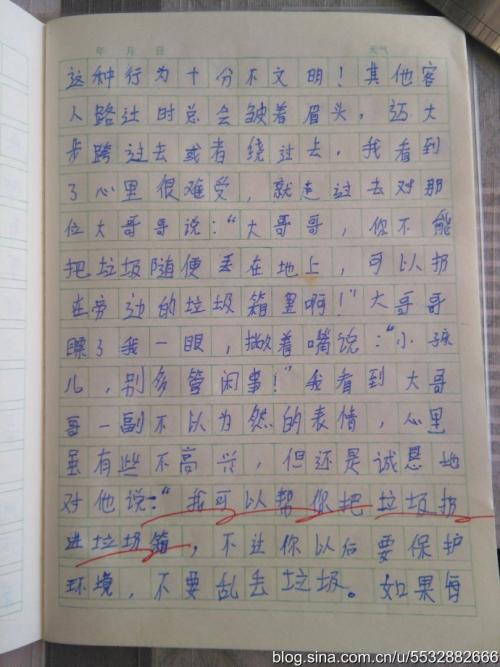 年 月 日 天气
这种行为十分不文明！其他客
人路过时总会皱着眉头，迈大
步跨过去或者绕过去。我看到
了心里很难受，就走过去对那
位大哥哥说：“大哥哥，你不能
把垃圾随便丢在地上，可以扔
在旁边的垃圾箱里啊！”大哥哥
瞟了我一眼，撇着嘴说：“小孩
儿，别多管闲事！”我看到大哥
哥一副不以为然的表情，心里
虽有些不高兴，但还是诚恳地
对他说：“我可以帮你把垃圾扔
进垃圾箱，不过你以后要保护
环境，不要乱丢垃圾。如果每
blog.sina.com.cn/u/5532882666